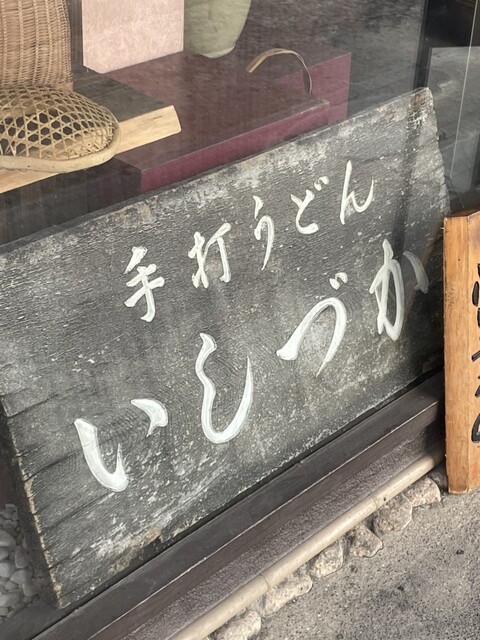 手打うどん
いしづか